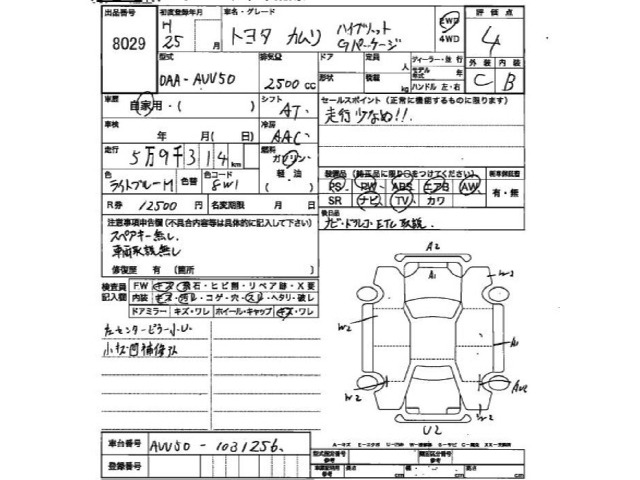 出品番号 初度登録年月 車名・グレード 2WD 4WD 評価点
8029 H 25 年 月 トヨタ カムリ ハイブリット Gパッケージ 4
型式 排気量 ドア 定員 人 ディーラー・並行 外装 内装
DAA-AVV50 2500 cc 形状 積載 kg モデル年式 年 ハンドル 左・右 C B
車歴 自家用・( ) シフト AT セールスポイント(正常に機能するものに限ります)
車検 年 月(日) 冷房 AAC 走行少なめ!!
走行 5万9千314 km 燃料 ガソリン 軽・油
色 ライトブルーM 色替 色コード 8W1 ( )
装備品(純正品に限り○をつけてください)
PS PW ABS エアB AW 有・無
SR ナビ TV カワ
R券 12500 円 名変期限 月 日 後日品
注意事項申告欄(不具合内容等は具体的に記入して下さい) ナビ・ドラレコ・ETC取説
スペアキー無し
車両取説無し
修復歴 有 (箇所 )
検査員記入欄 FW キズ・飛石・ヒビ割・リペア跡・X要
内装 キズ・汚レ・コゲ・穴・スレ・ヘタリ・破レ
ドアミラー キズ・ワレ ホイール・キャップ キズ・ワレ
左センターピラー小U
小キズ凹補修跡
A2
A1
W2
W2
A1
W2
AW2
W2
U2
車台番号 AVV50-1031256
登録番号
型式指定番号 参考 類別区分番号 参考
車両記載用 参考 長さ cm 幅 cm 高さ cm